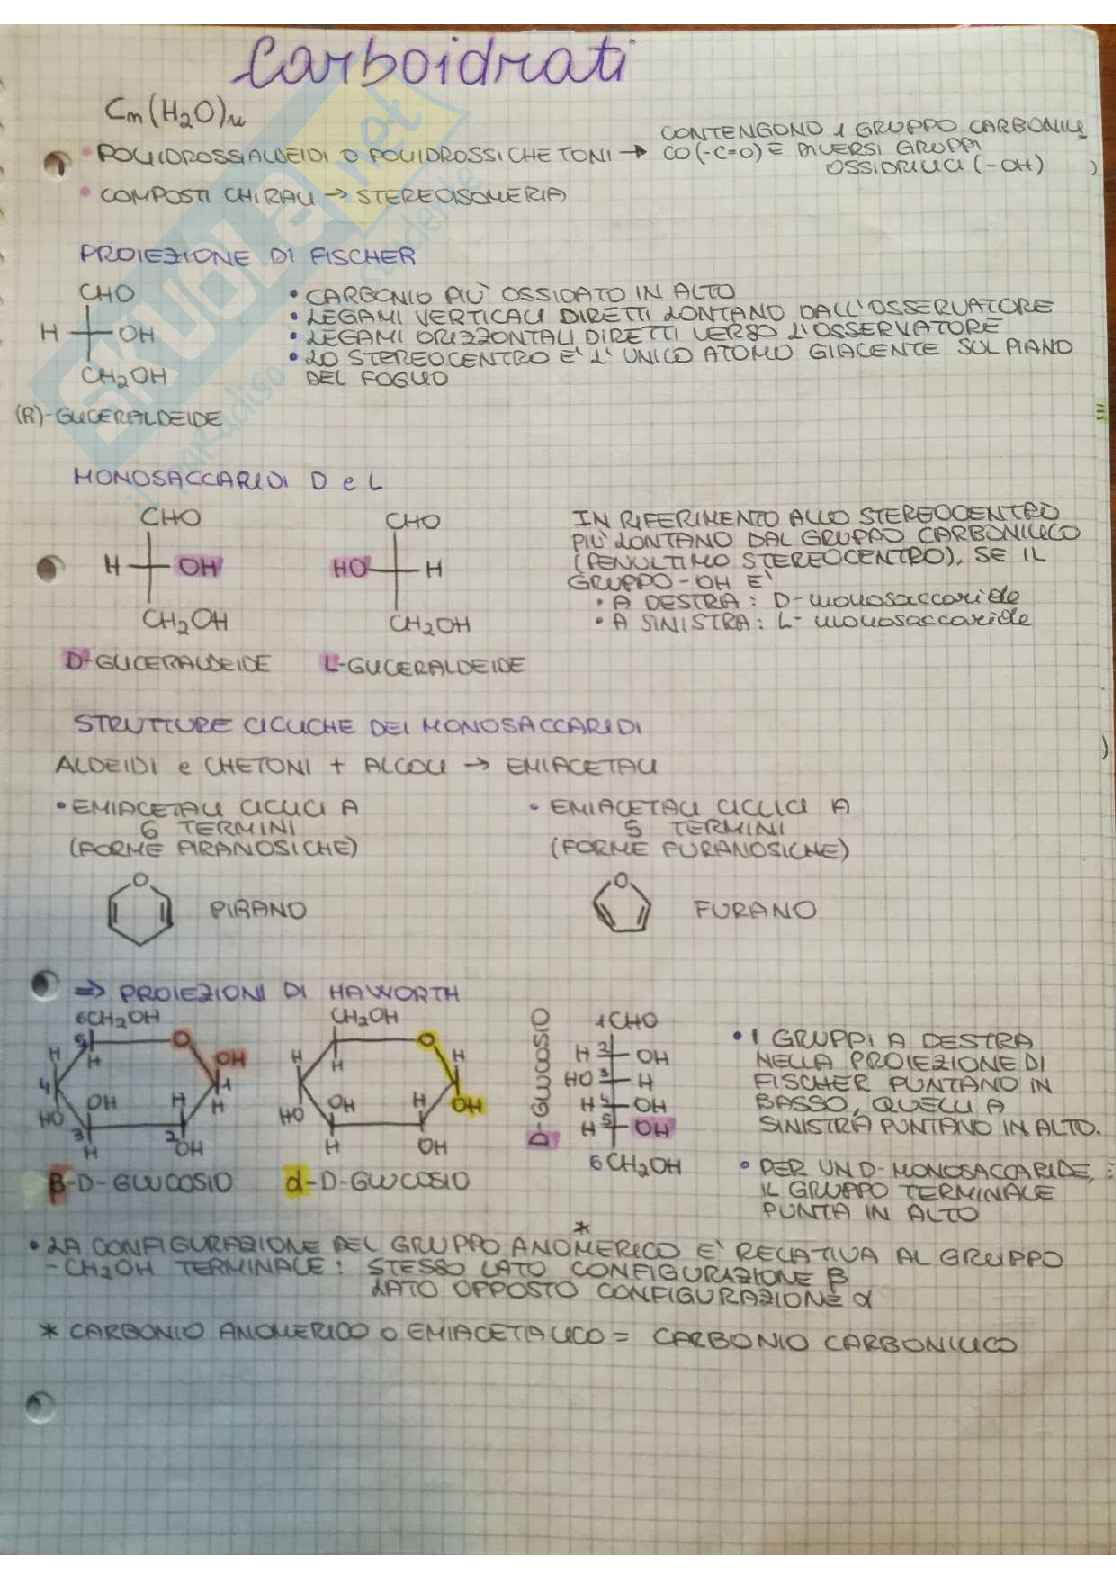 Carboidrati
Cm(H2O)n
• POLIIDROSSIALDEIDI O POLIIDROSSICHETONI → CONTENGONO 1 GRUPPO CARBONILI
CO(-C=O) E DIVERSI GRUPPI
OSSIDRILICI (-OH)
• COMPOSTI CHIRALI → STEREOISOMERIA
PROIEZIONE DI FISCHER
CHO
H OH
CH2OH
(R)-GLICERALDEIDE
• CARBONIO PIÙ OSSIDATO IN ALTO
• LEGAMI VERTICALI DIRETTI LONTANO DALL'OSSERVATORE
• LEGAMI ORIZZONTALI DIRETTI VERSO L'OSSERVATORE
• LO STEREOCENTRO E' L'UNICO ATOMO GIACENTE SUL PIANO
DEL FOGLIO
MONOSACCARIDI D e L
CHO
H OH
CH2OH
D-GLICERALDEIDE
CHO
HO H
CH2OH
L-GLICERALDEIDE
IN RIFERIMENTO ALLO STEREOCENTRO
PIÙ LONTANO DAL GRUPPO CARBONILICO
(PENULTIMO STEREOCENTRO), SE IL
GRUPPO -OH E'
• A DESTRA: D-monosaccaride
• A SINISTRA: L-monosaccaride
STRUTTURE CICLICHE DEI MONOSACCARIDI
ALDEIDI e CHETONI + ALCOLI → EMIACETALI
• EMIACETALI CICLICI A
6 TERMINI
(FORME PIRANOSICHE)
O
PIRANO
• EMIACETALI CICLICI A
5 TERMINI
(FORME FURANOSICHE)
O
FURANO
⇒ PROIEZIONI DI HAWORTH
6CH2OH
5 O
H H OH
4 1
HO OH H H
3 2
H OH
β-D-GLUCOSIO
CH2OH
O
H H H
HO OH H OH
H OH
α-D-GLUCOSIO
D-GLUCOSIO
1CHO
H 2 OH
HO 3 H
H 4 OH
H 5 OH
6CH2OH
• I GRUPPI A DESTRA
NELLA PROIEZIONE DI
FISCHER PUNTANO IN
BASSO, QUELLI A
SINISTRA PUNTANO IN ALTO.
• PER UN D-MONOSACCARIDE,
IL GRUPPO TERMINALE
PUNTA IN ALTO
• LA CONFIGURAZIONE DEL GRUPPO ANOMERICO* E' RELATIVA AL GRUPPO
-CH2OH TERMINALE: STESSO LATO CONFIGURAZIONE β
LATO OPPOSTO CONFIGURAZIONE α
* CARBONIO ANOMERICO O EMIACETALICO = CARBONIO CARBONILICO